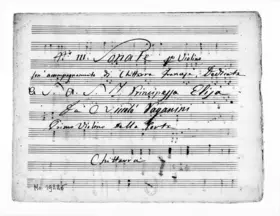 N.º III. Sonate per Violino
con accompagnamento di Chittarra francese Dedicate
a S. A. S. la Principessa Elisa
Da
Paganini
Primo Violino della Corte
Chittarra